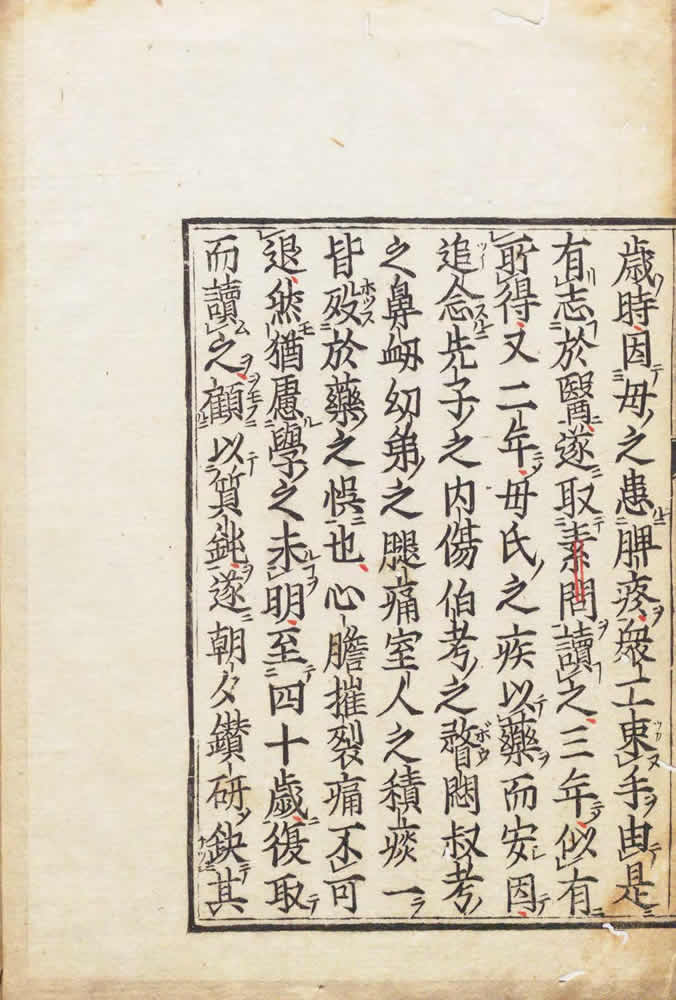 歲時因母之患脾疼衆工束手由是
有志於醫遂取素問讀之三年似有
所得又二年母氏之疾以藥而安因
追念先子之内傷伯考之瞀悶叔考
之鼻衄幼弟之腿痛室人之積痰一
皆歿於藥之悞也心膽摧裂痛不可
退然猶慮學之未明至四十歲復取
而讀之顧以質鈍遂朝夕鑽研缺其